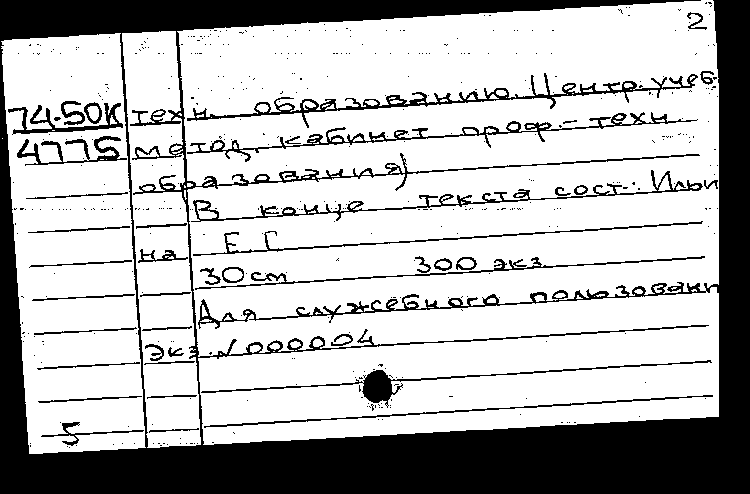 2
74.50К техн. образованию. Центр. учеб.
4775 метод. кабинет проф.-техн.
образования)
В конце текста сост.: Ильи
на Е Г
30 cm 300 экз
Для служебного пользовани
экз. №000004
5